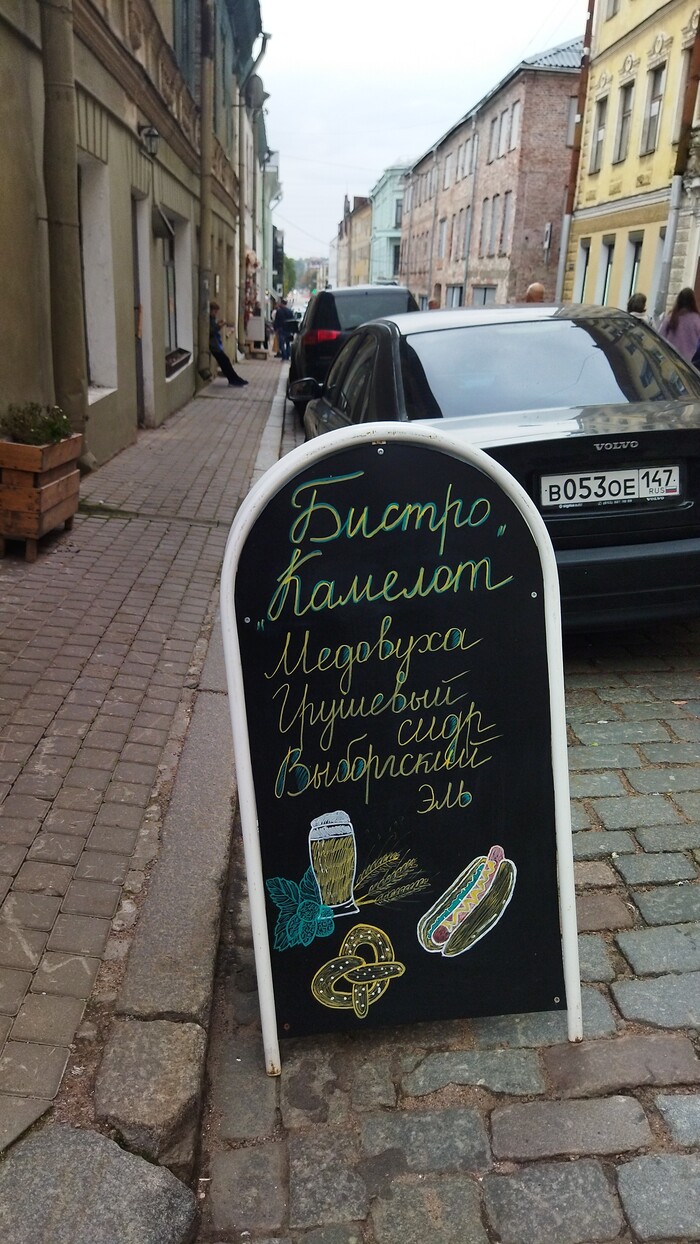 Бистро
„Камелот”
Медовуха
Грушевый
сидр
Выборгский
эль
VOLVO
В053ОЕ 147
RUS